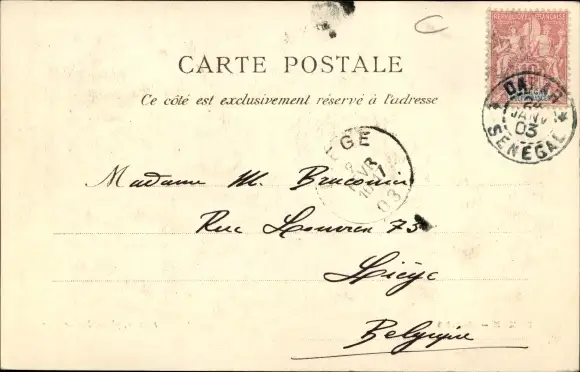 C
RÉPUBLIQUE FRANÇAISE
CARTE POSTALE
DAKAR
JANV
03
SENEGAL
Ce côté est exclusivement réservé à l'adresse
GE
8
03
Madame M.
Rue Louvrex 73
Liège
Belgique